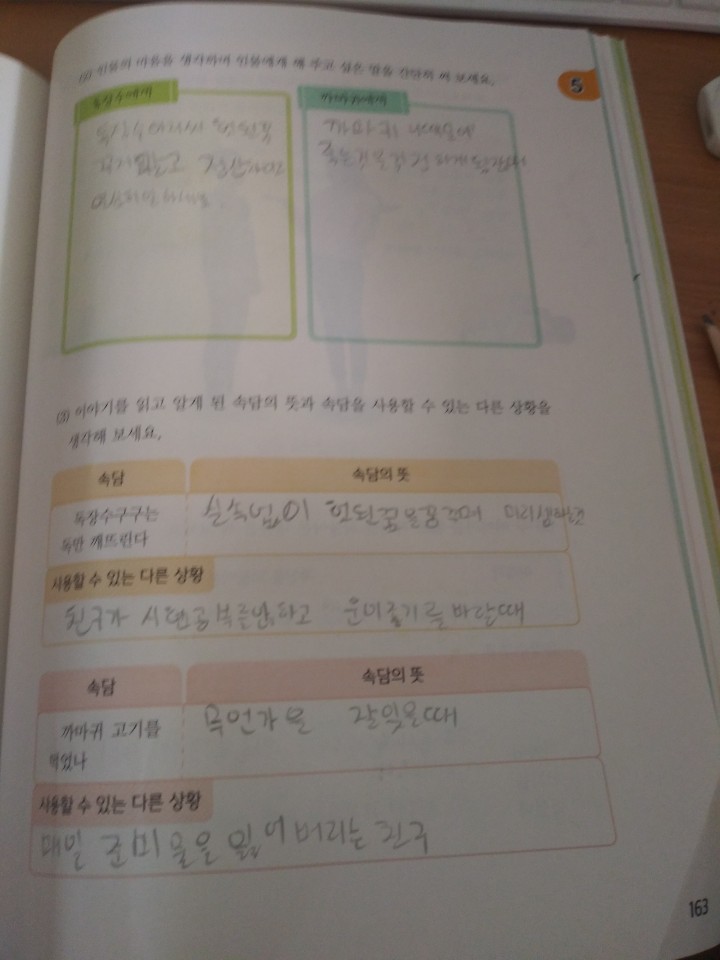 (2) 인물의 마음을 생각하며 인물에게 해 주고 싶은 말을 간단히 써 보세요.
5
독장수에게
까마귀에게
헛된꿈
까마귀
(3) 이야기를 읽고 알게 된 속담의 뜻과 속담을 사용할 수 있는 다른 상황을
생각해 보세요.
속담
속담의 뜻
독장수구구는
독만 깨뜨린다
실속없이 헛된꿈을꿈꾸며 미리
사용할 수 있는 다른 상황
친구가 시험공부는안하고 운이 를 바랄때
속담
속담의 뜻
까마귀 고기를
먹었나
무언가을 잘잊을때
사용할 수 있는 다른 상황
매일 준비물을 잃어버리는 친구
163